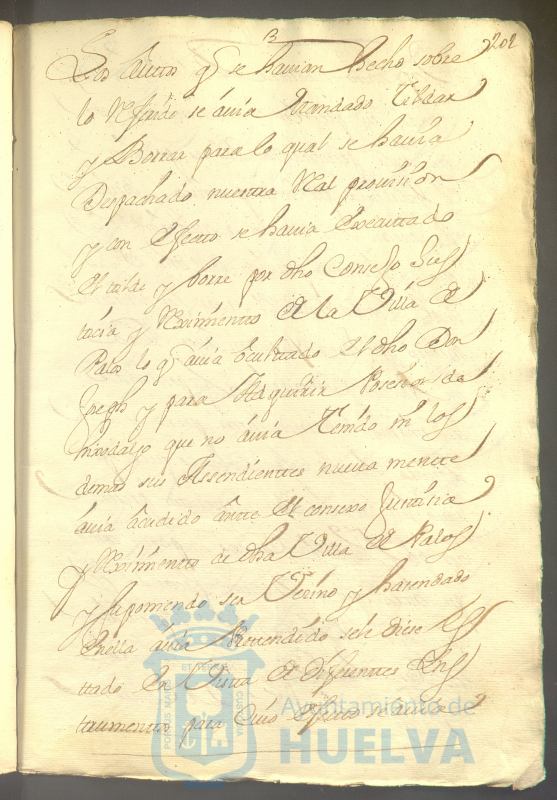 B
202
Los Autos q se havian hecho sobre
lo Referido se avia Mandado tildar
y Borrar para lo qual se havia
Despachado nuestra Real provision
y con Efecto se havia Executtado
El tilde y borre por dho Consejo Jus
ticia y Reximiento de la Villa de
Palos lo q avia ocultado El dho Don
Joseph y para Adquirir Posesion de
hixodalgo que no avia Tenido ni los
demas sus Assendientes nueva mentte
avia acudido antte El consexo Justicia
y Reximiento de dha Villa de Palos
y suponiendo ser Vezino y hazendado
En ella avia Prettendido se le diese Es
ttado En Vista de diferentes Ins
trumentos para Cuio Efecto se avia
PORTUS MARIS ET TERRAE CUSTODIA
Ayuntamiento de
HUELVA